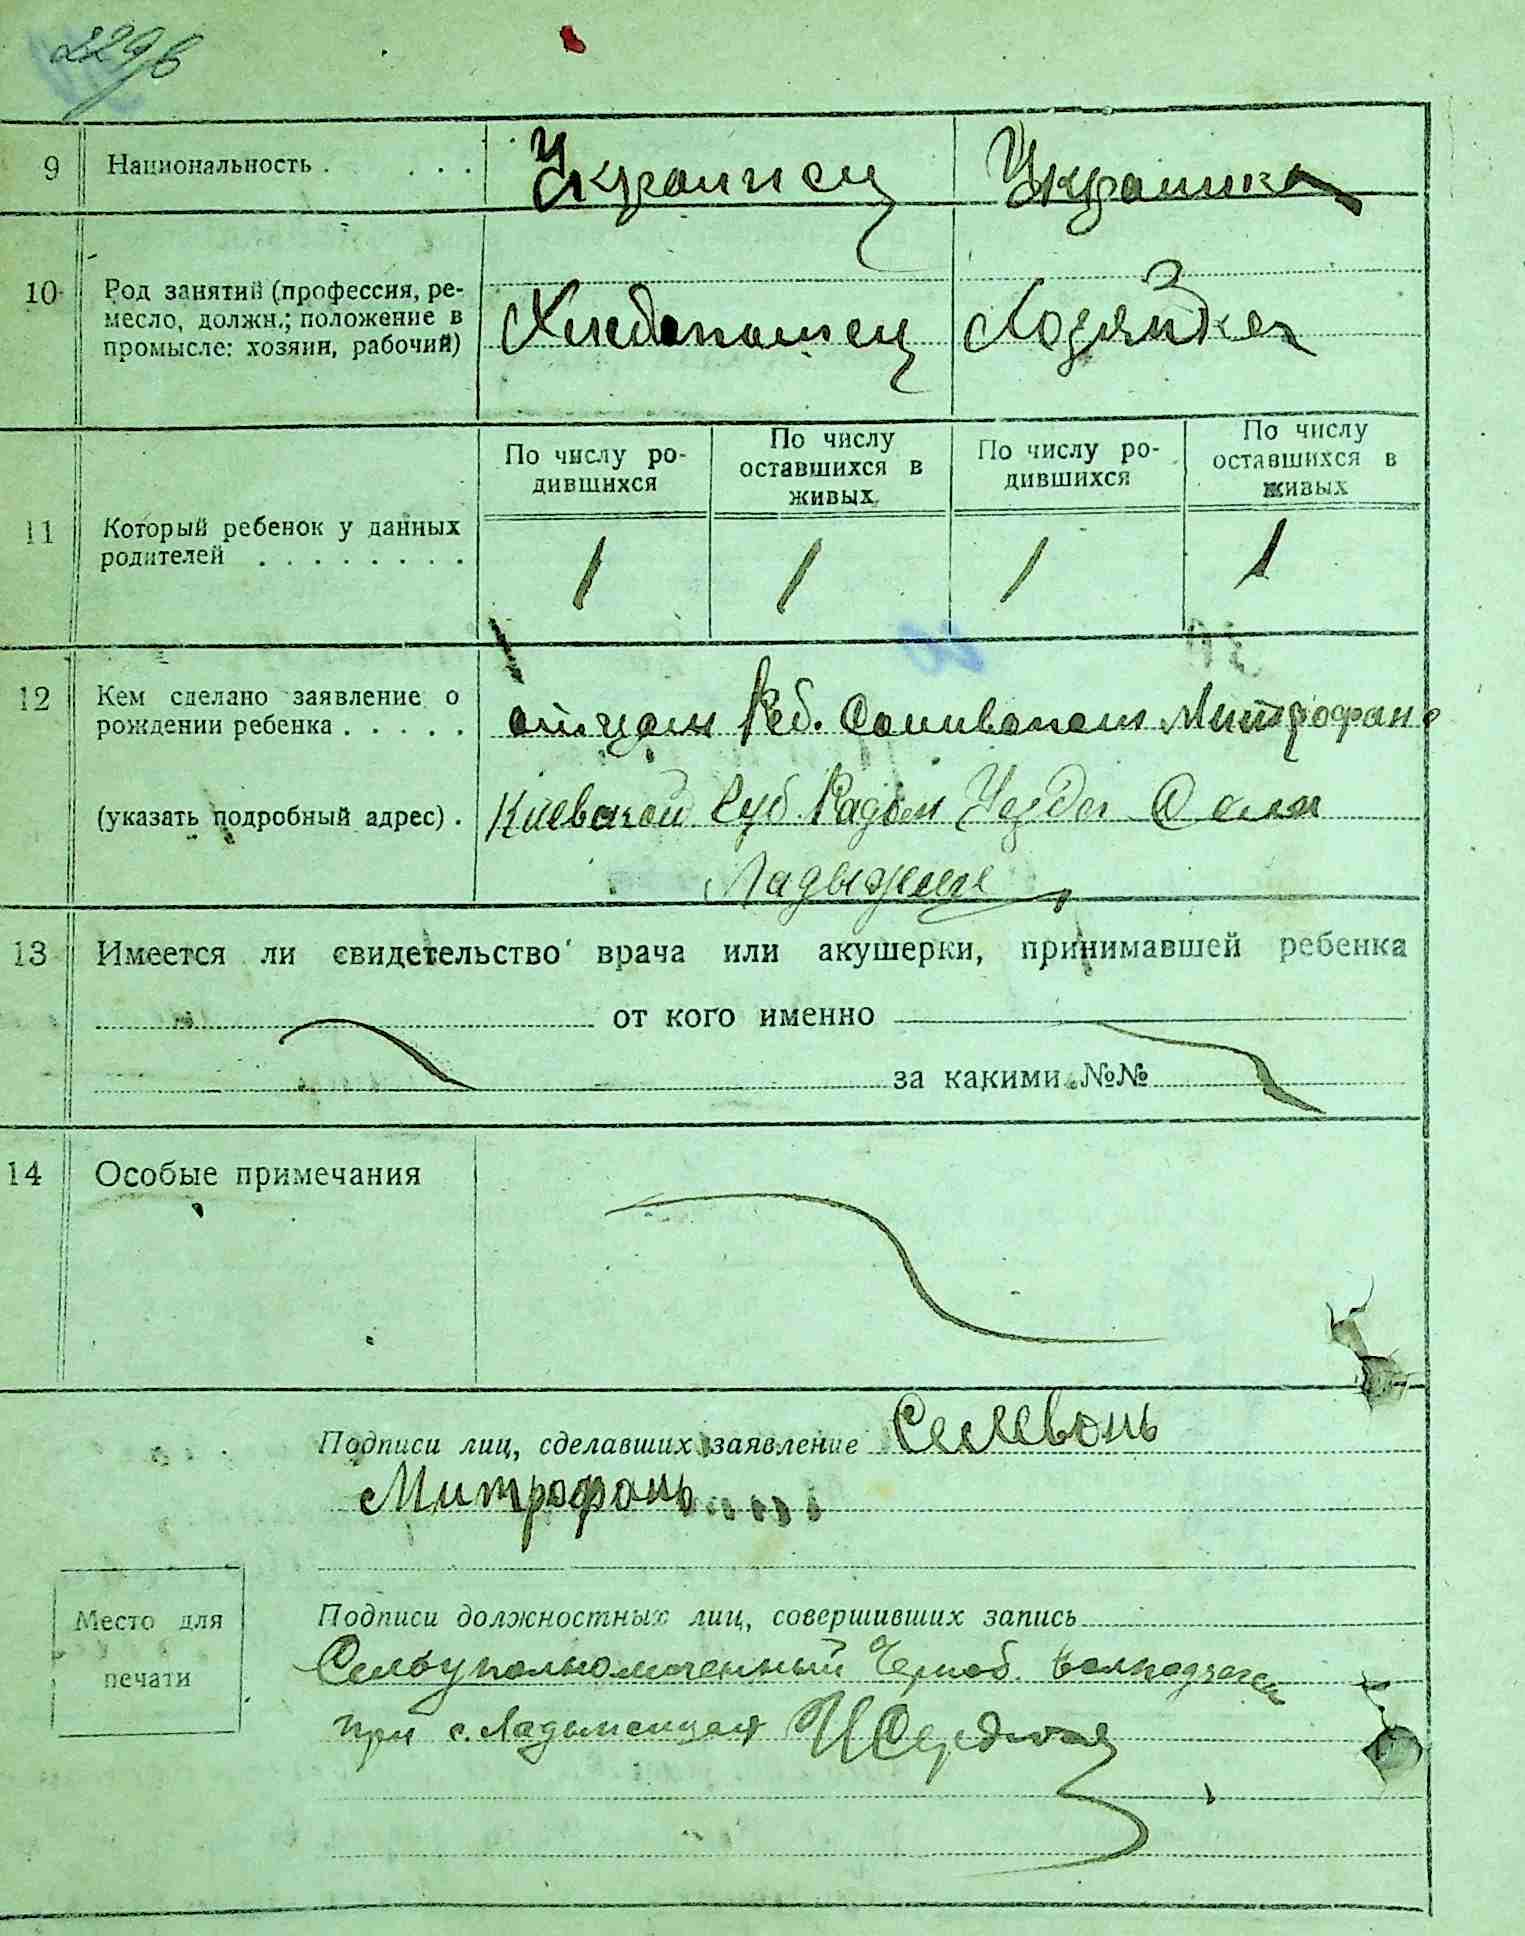 229 б
9 Национальность . . . . Украинец Украинка
10 Род занятий (профессия, ре-
месло, должн.; положение в
промысле: хозяин, рабочий)
Хлебопашец Хозяйка
По числу ро-
дившихся
По числу
оставшихся в
живых
По числу ро-
дившихся
По числу
оставшихся в
живых
11 Который ребенок у данных
родителей . . . . . . . .
1 1 1 1
12 Кем сделано заявление о
рождении ребенка . . . . .
отцом Реб. Митрофан
(указать подробный адрес) . Киевской Губ. Радом Уезда Села
Ладыжичи
13 Имеется ли свидетельство врача или акушерки, принимавшей ребенка
от кого именно
за какими №№
14 Особые примечания
Подписи лиц, сделавших заявление Селевонь
Митрофонь
Место для
печати
Подписи должностных лиц, совершивших запись
Сельуполномоченный Черноб.
при с.